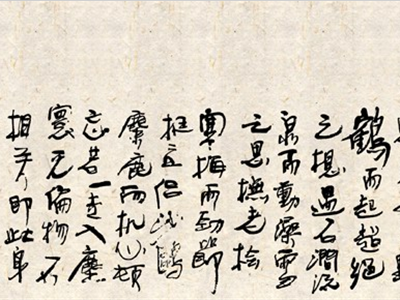 鶴而起超絕
之想遇石澗流
泉而動澡雪
之思撫老檜
寒梅而勁節
挺立侶沙鷗
麋鹿而机心頓
忘若一走入塵
寰无論物不
相关即此身